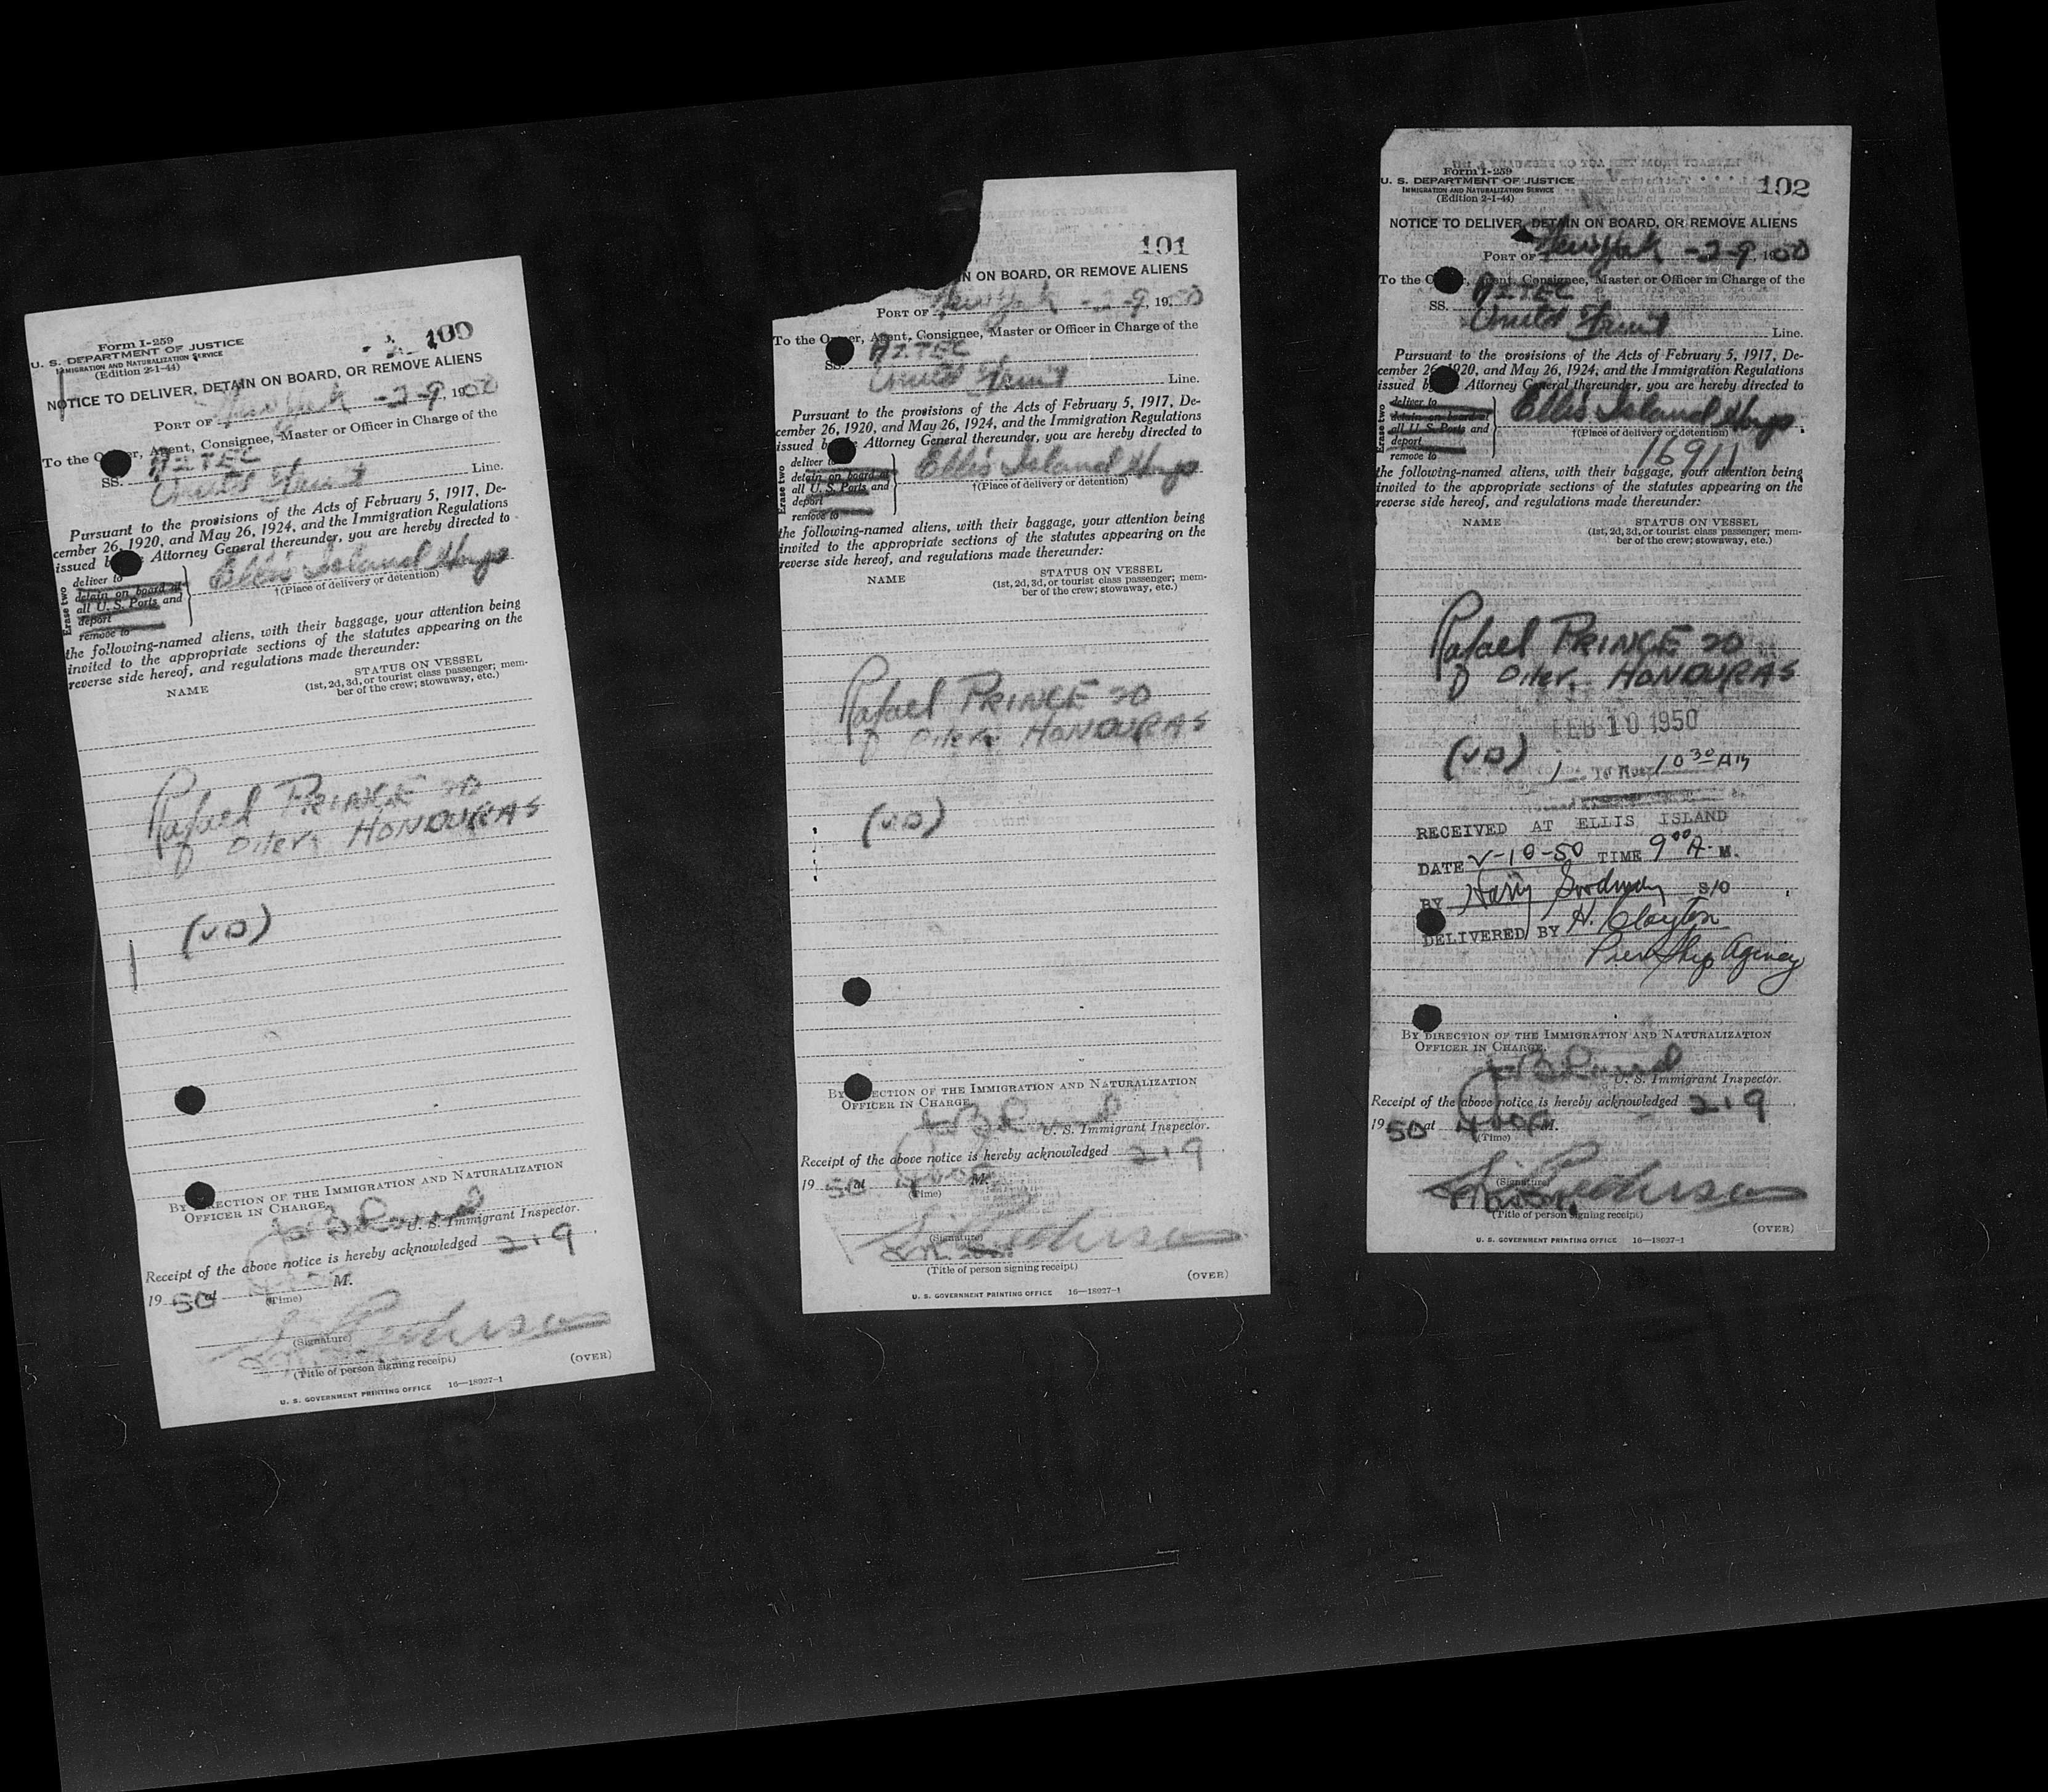 100
Form I-259
U. S. DEPARTMENT OF JUSTICE
IMMIGRATION AND NATURALIZATION SERVICE
(Edition 2-1-44)
NOTICE TO DELIVER, DETAIN ON BOARD, OR REMOVE ALIENS
PORT OF New York -2-9, 1950
To the Owner, Agent, Consignee, Master or Officer in Charge of the
SS. AZTEC
United Fruit Line.
Pursuant to the provisions of the Acts of February 5, 1917, De-
cember 26, 1920, and May 26, 1924, and the Immigration Regulations
issued by Attorney General thereunder, you are hereby directed to
Erase two
deliver to
detain on board at
all U. S. Ports and
deport
remove to
Ellis Island Hosp
†(Place of delivery or detention)
the following-named aliens, with their baggage, your attention being
invited to the appropriate sections of the statutes appearing on the
reverse side hereof, and regulations made thereunder:
NAME STATUS ON VESSEL
(1st, 2d, 3d, or tourist class passenger; mem-
ber of the crew; stowaway, etc.)
Rafael PRINCE 20
Oiler. HONDURAS
(VD)
BY DIRECTION OF THE IMMIGRATION AND NATURALIZATION
OFFICER IN CHARGE,
U. S. Immigrant Inspector.
Receipt of the above notice is hereby acknowledged 2-9
1950 at M.
(Time)
(Signature)
(Title of person signing receipt)
(OVER)
U. S. GOVERNMENT PRINTING OFFICE 16—18927-1
101
N ON BOARD, OR REMOVE ALIENS
PORT OF New York -2-9, 1950
To the Owner, Agent, Consignee, Master or Officer in Charge of the
SS. AZTEC
United Fruit Line.
Pursuant to the provisions of the Acts of February 5, 1917, De-
cember 26, 1920, and May 26, 1924, and the Immigration Regulations
issued by Attorney General thereunder, you are hereby directed to
Erase two
deliver to
detain on board at
all U. S. Ports and
deport
remove to
Ellis Island Hosp
†(Place of delivery or detention)
the following-named aliens, with their baggage, your attention being
invited to the appropriate sections of the statutes appearing on the
reverse side hereof, and regulations made thereunder:
NAME STATUS ON VESSEL
(1st, 2d, 3d, or tourist class passenger; mem-
ber of the crew; stowaway, etc.)
Rafael PRINCE 20
Oiler. HONDURAS
(VD)
BY DIRECTION OF THE IMMIGRATION AND NATURALIZATION
OFFICER IN CHARGE,
U. S. Immigrant Inspector.
Receipt of the above notice is hereby acknowledged 2-9
1950 at 400P M.
(Time)
(Signature)
(Title of person signing receipt)
(OVER)
U. S. GOVERNMENT PRINTING OFFICE 16—18927-1
102
Form I-259
U. S. DEPARTMENT OF JUSTICE
IMMIGRATION AND NATURALIZATION SERVICE
(Edition 2-1-44)
NOTICE TO DELIVER, DETAIN ON BOARD, OR REMOVE ALIENS
PORT OF New York -2-9, 1950
To the Owner, Agent, Consignee, Master or Officer in Charge of the
SS. AZTEC
United Fruit Line.
Pursuant to the provisions of the Acts of February 5, 1917, De-
cember 26, 1920, and May 26, 1924, and the Immigration Regulations
issued by Attorney General thereunder, you are hereby directed to
Erase two
deliver to
detain on board at
all U. S. Ports and
deport
remove to
Ellis Island Hosp.
†(Place of delivery or detention)
the following-named aliens, with their baggage, your attention being
invited to the appropriate sections of the statutes appearing on the
reverse side hereof, and regulations made thereunder:
NAME STATUS ON VESSEL
(1st, 2d, 3d, or tourist class passenger; mem-
ber of the crew; stowaway, etc.)
Rafael PRINCE 20
Oiler. HONDURAS
FEB 10 1950
(VD) 1 To Hosp 10 30 AM
RECEIVED AT ELLIS ISLAND
DATE 2-10-50 TIME 9 00 A. M.
BY Harry S/O
DELIVERED BY H. Clayton
Ship Agency
BY DIRECTION OF THE IMMIGRATION AND NATURALIZATION
OFFICER IN CHARGE,
U. S. Immigrant Inspector.
Receipt of the above notice is hereby acknowledged 2-9
1950 at 400P M.
(Time)
(Signature)
Master.
(Title of person signing receipt)
(OVER)
U. S. GOVERNMENT PRINTING OFFICE 16—18927-1